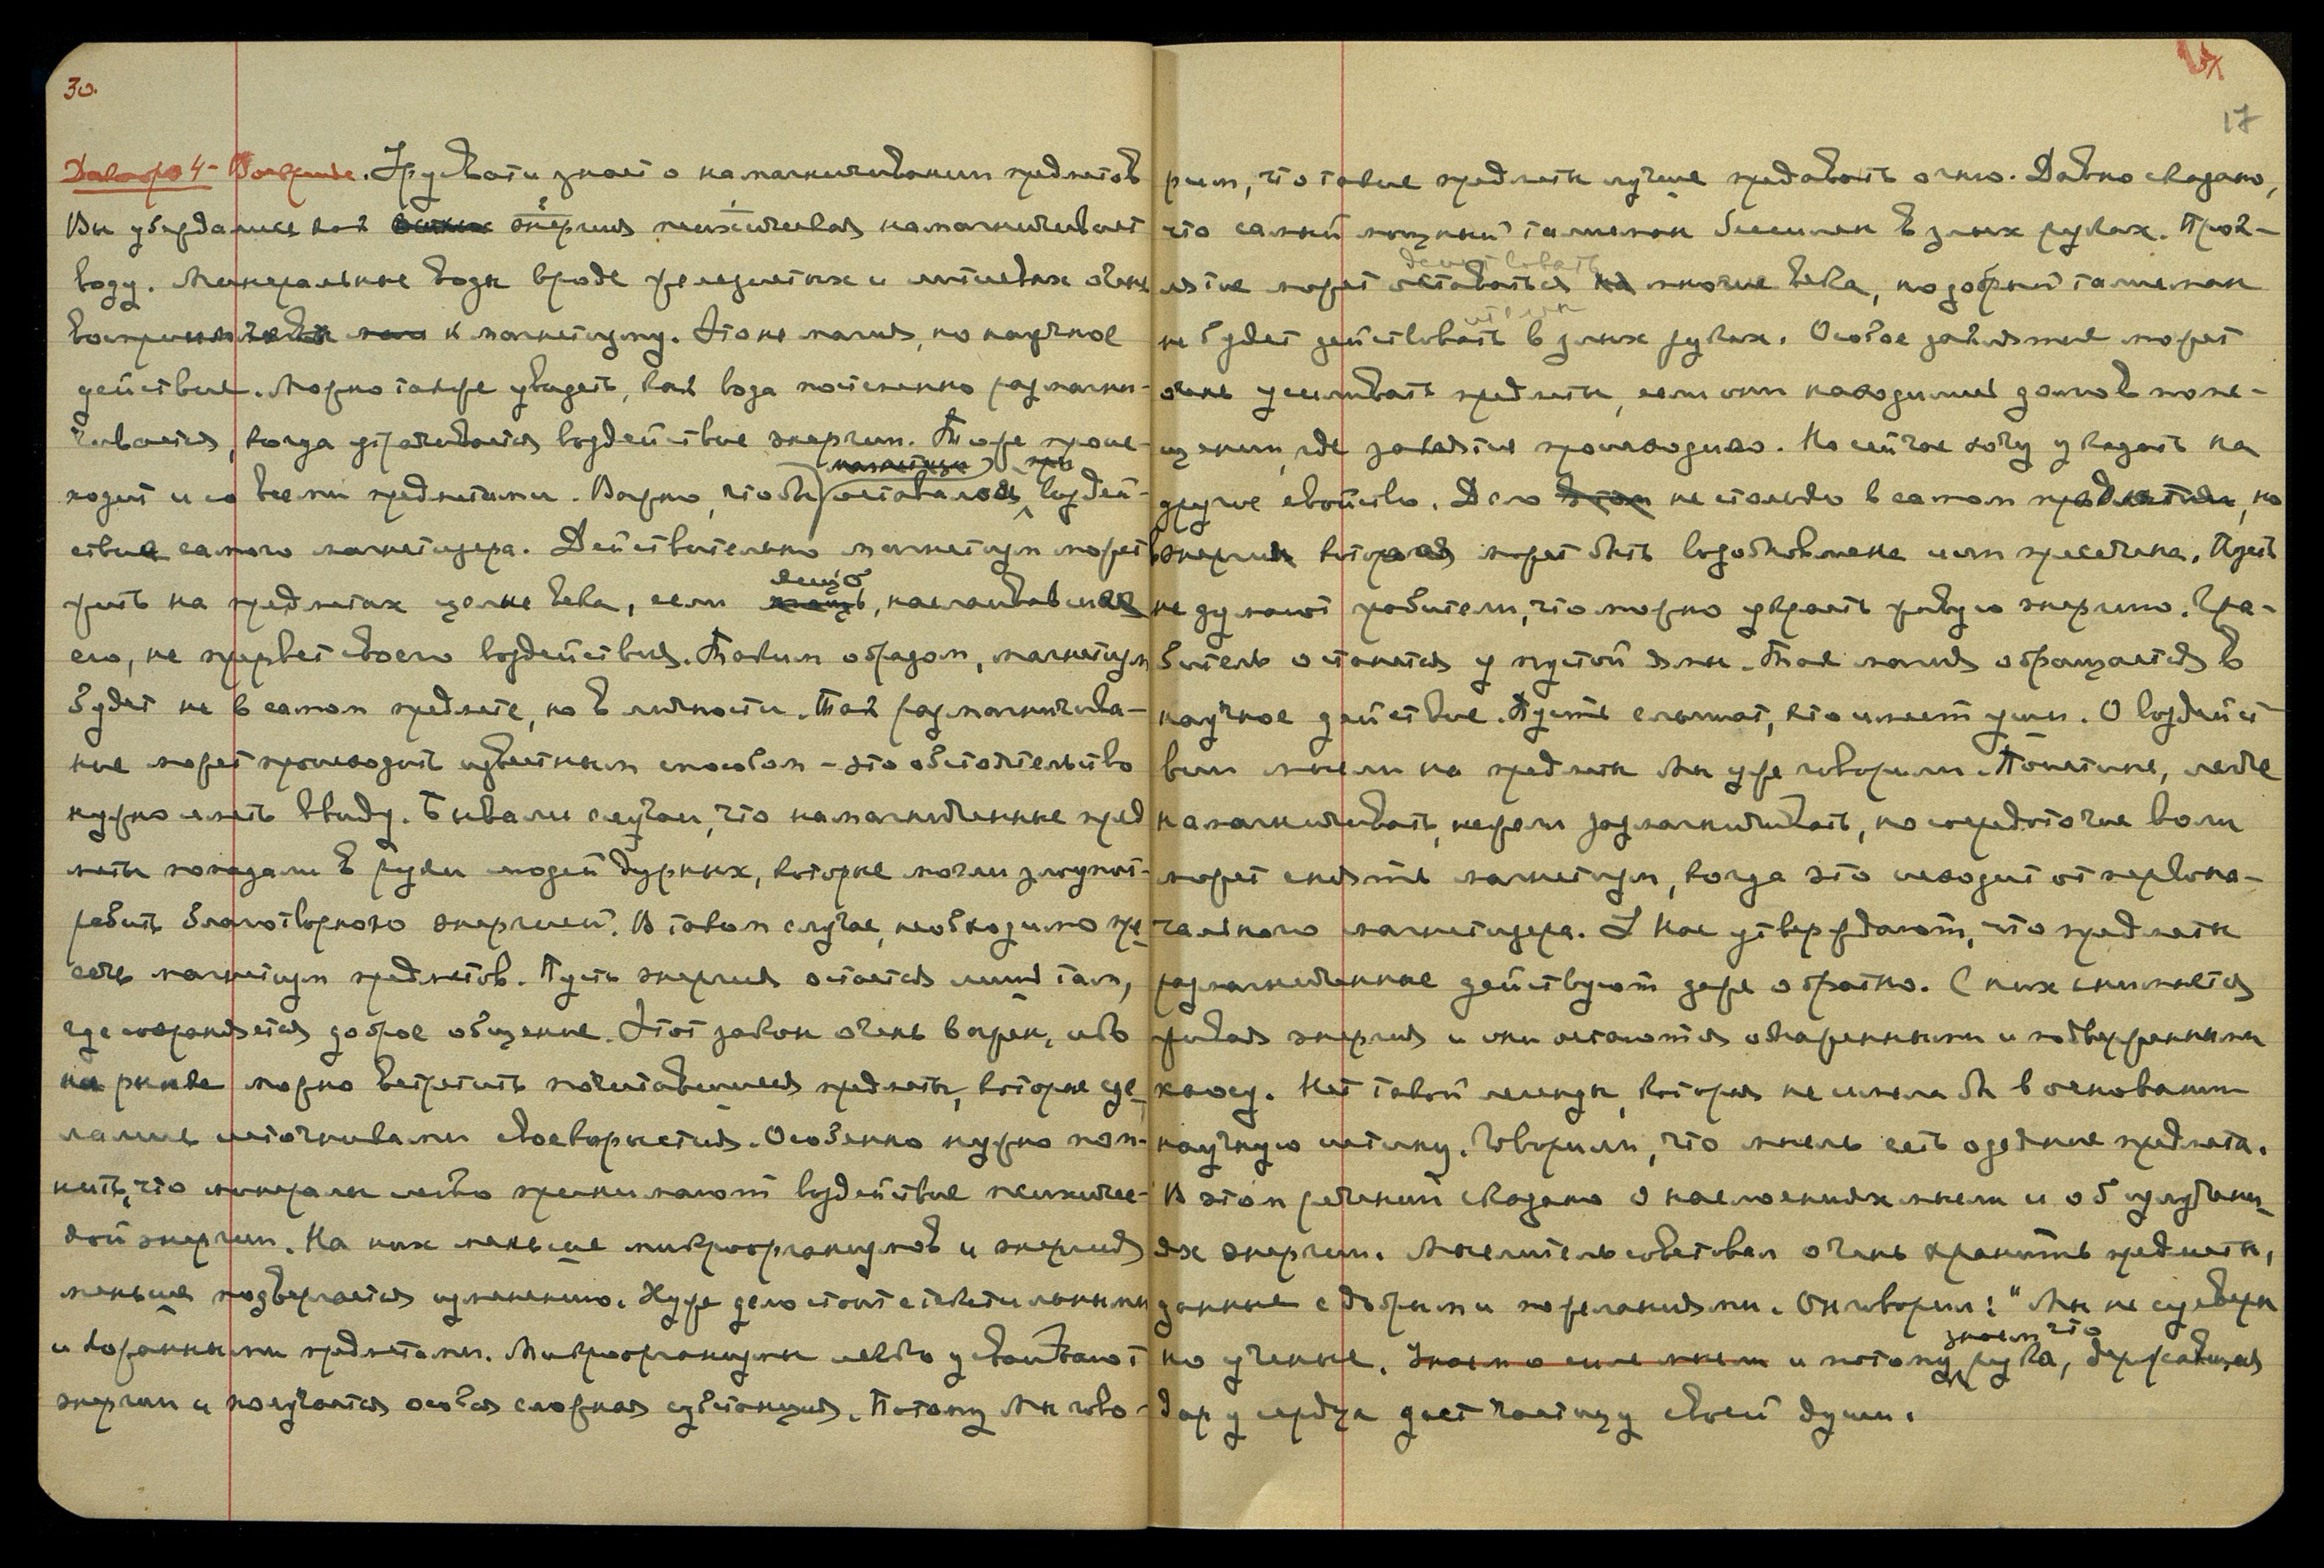 30.
4 - Воскрисенье. Урусвати знает о намагничивании предметов
Вы убердались как энергия психическая намагничивает
воду. Минеральные воды вроде железистых и литиевых очень
восприимчивы к магнетизму. Это не магия, но научное
действие. Можно также увидеть, как вода постепенно размагни-
чивается, когда утрачивается воздействие энергии. То же проис-
ходит и со всеми предметами. Важно, чтобы оставалось воздей-
ствие самого магнетизера. Действительно магнетизм может
жить на предметах целые века, если лицо, наслаивавшее
его, не прервет своего воздействия. Таким образом, магнетизм
будет не в самом предмете, но в личности. Так размагничива-
ние может происходить известным способом - это обстоятельство
нужно иметь ввиду. Бывали случаи, что намагниченные пред
меты попадали в руки людей дурных, которые могли злоупот-
ребить благотворною энергией. В таком случае, необходимо пре-
сечь магнетизм предметов. Пусть энергия остается лишь там,
где сохраняется доброе общение. Этот закон очень важен, ибо
на рынке можно встретить почитавшиеся предметы, которые сде-
лались источниками своекорыстия. Особенно нужно пом-
нить, что минералы легко принимают воздействие психичес-
кой энергии. На них меньше микроорганизмов и энергия
меньше подвергается изменению. Хуже дело стоит с текстильными
и кожанными предметами. Микроорганизмы легко усваивают
энергии и получается особая сложная субстанция. Потому Мы гово-
17
рим, что такие предметы лучше предавать огню. Давно сказано,
что самый мощный талисман бессилен в злых руках. Прок-
действовать
лятие может оставаться на многие века, но добрый талисман
не будет действовать в злых руках. Особое заклятие может
очень усиливать предметы, если они находились долго в поме-
щении, где заклятие производило. Но сейчас хочу указать на
другое свойство. Дело не столько в самом предмете, но
в энергии которая может быть возобновлена или пресечена. Пусть
не думают грабители, что можно украсть живую энергию. Гра-
битель останется у пустой ямы. Так магия обращается в
научное действие. Пусть слышат, кто имеет уши. О воздейст
вии мысли на предметы Мы уже говорили. Поистине, легче
намагничивать, нежели размагничивать, но сосредоточие воли
может снять магнетизм, когда это исходит от первона-
чального магнетизера. У Нас утверждают, что предметы
размагниченные действуют даже обратно. С них снимается
живая энергия и они остаются обнаженными и подверженными
хаосу. Нет такой легенды, которая не имела бы в основании
научную истину. Говорили, что мысль есть одеяние предмета.
В этом речении сказано о наслоениях мысли и об излучени-
ях энергии. Мыслитель советовал очень хранить предметы,
данные с добрыми пожеланиями. Он говорил: "Мы не суеверы
но ученые. Знаем о силе мысли и потому знаем что рука, державшая
дар у сердца дает частицу своей души.